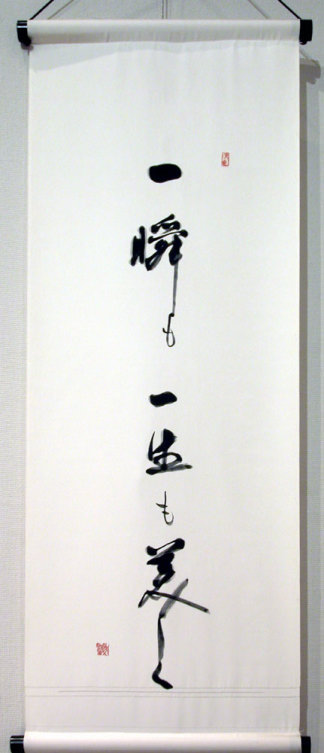 一瞬も一生も美しく